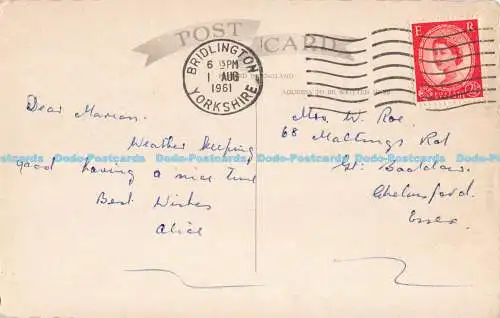 POST
CARD
BRIDLINGTON
6 15 PM
1 AUG
1961
YORKSHIRE
E R
ADDRESS TO BE WRITTEN HERE
Dear Marion.
Weather keeping
good having a nice time
Best Wishes
Alice
Mrs W. Roe.
68 Maltings Rd
Gt. Baddow.
Chelmsford.
Essex.
Dodo-Postcards Dodo-Postcards Dodo-Postcards Dodo-Postcards Dodo-Postcards